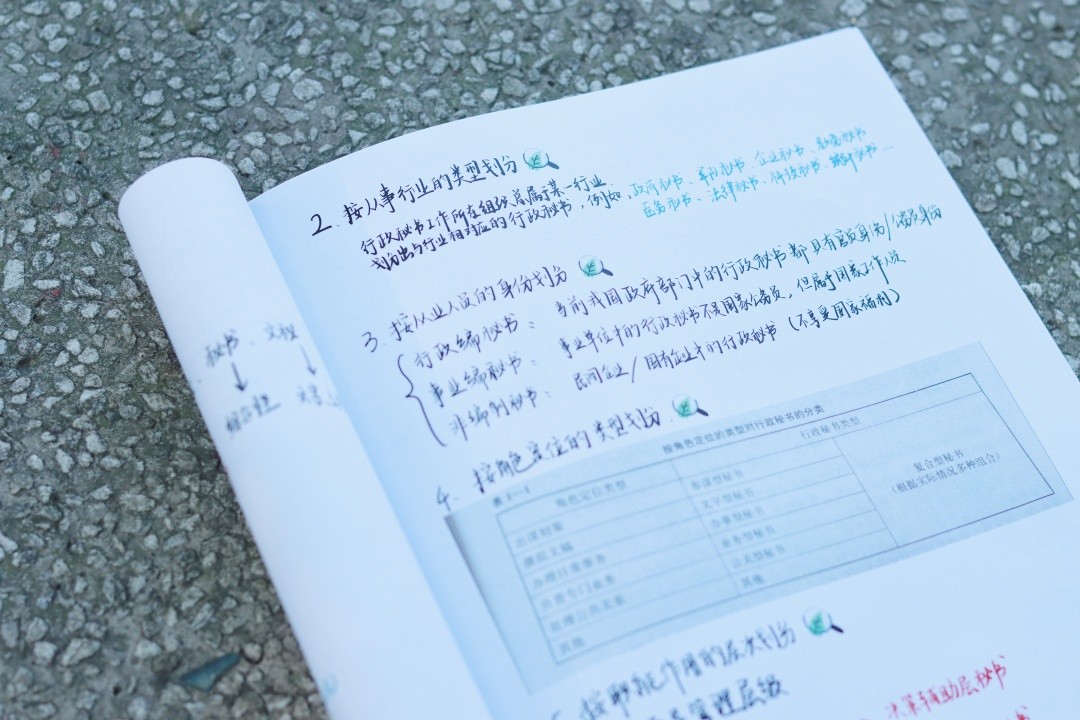 2. 按从事行业的类型划分
行政秘书工作所在组织总属于某一行业
划分出与行业相对应的行政秘书，例如，政府秘书、军政秘书、企业秘书、教育秘书
医务秘书、法律秘书、科技秘书
3. 按从业人员的身份划分
行政编秘书： 当前我国政府部门中的行政秘书都具有官员身份/公务员身份
事业编秘书： 事业单位中的行政秘书不是国家公务员，但属于国家工作人员
非编制秘书： 民间企业/国有企业中的行政秘书（不享受国家福利）
秘书、文秘
综合性
4. 按角色定位的类型划分
表1—1 按角色定位的类型对行政秘书的分类
角色定位类型 行政秘书类型
出谋划策 参谋型秘书 复合型秘书
撰拟文稿 文字型秘书 （根据实际情况多种组合）
办理日常事务 办事型秘书
负责专门业务 业务型秘书
处理公共关系 公关型秘书
其他 其他
按职能作用的层次划分
管理层级
决策辅助层秘书